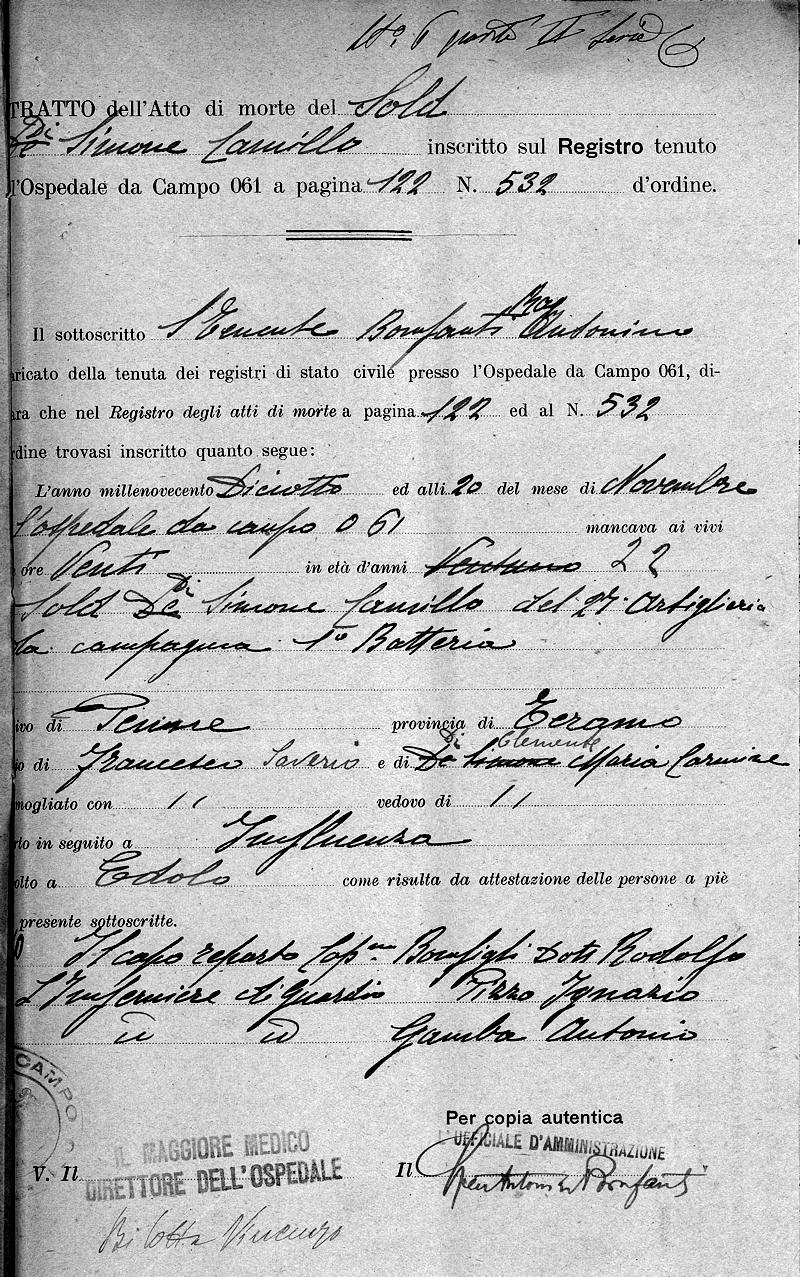 N.º 6 parte II serie C
TRATTO dell'Atto di morte del Sold
Di Simone Camillo inscritto sul Registro tenuto
l'Ospedale da Campo 061 a pagina 122 N. 532 d'ordine.
Rag
Il sottoscritto S/Tenente Bonfanti Antonino
aricato della tenuta dei registri di stato civile presso l'Ospedale da Campo 061, di-
ara che nel Registro degli atti di morte a pagina 122 ed al N. 532
rdine trovasi inscritto quanto segue:
L'anno millenovecento Diciotto ed alli 20 del mese di Novembre
l'ospedale da campo 061 mancava ai vivi
ore Venti in età d'anni Ventuno 22
Di
Sold De Simone Camillo del 27. Artiglieria
da campagna 1ª Batteria
ivo di Penne provincia di Teramo
Di Clemente
o di Francesco Saverio e di De Simone Maria Carmine
mogliato con " vedovo di "
rto in seguito a Influenza
olto a Edolo come risulta da attestazione delle persone a piè
presente sottoscritte.
Il capo reparto Cap.no Bonfigli Dott Rodolfo
L'Infermiere di Guardia Pizzo Ignazio
id id Gamba Antonio
CAMPO
Per copia autentica
IL MAGGIORE MEDICO L'UFFICIALE D'AMMINISTRAZIONE
V. Il DIRETTORE DELL'OSPEDALE Il Bonfanti
Bilotta Vincenzo